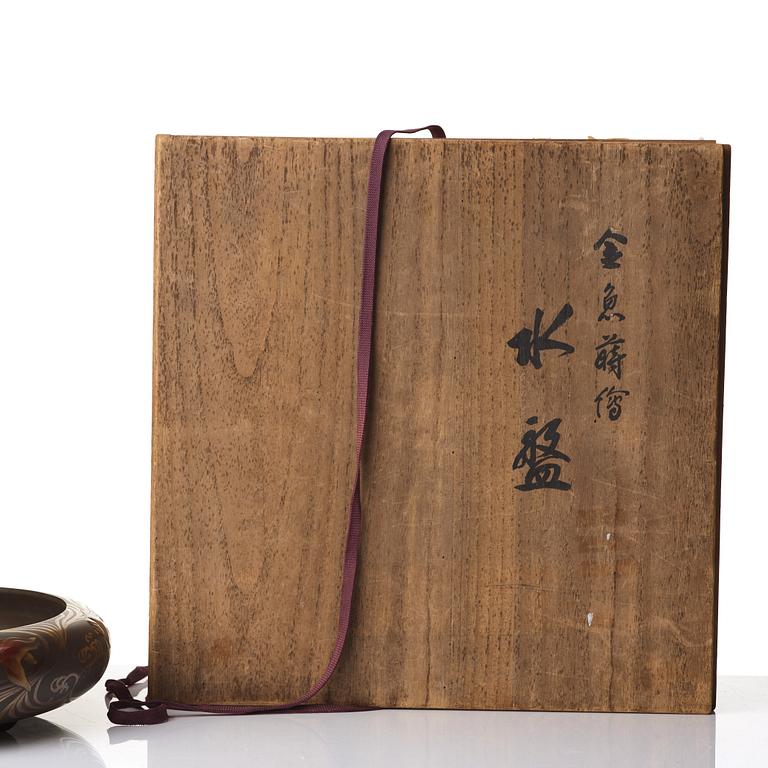 金魚蒔繪
水盤